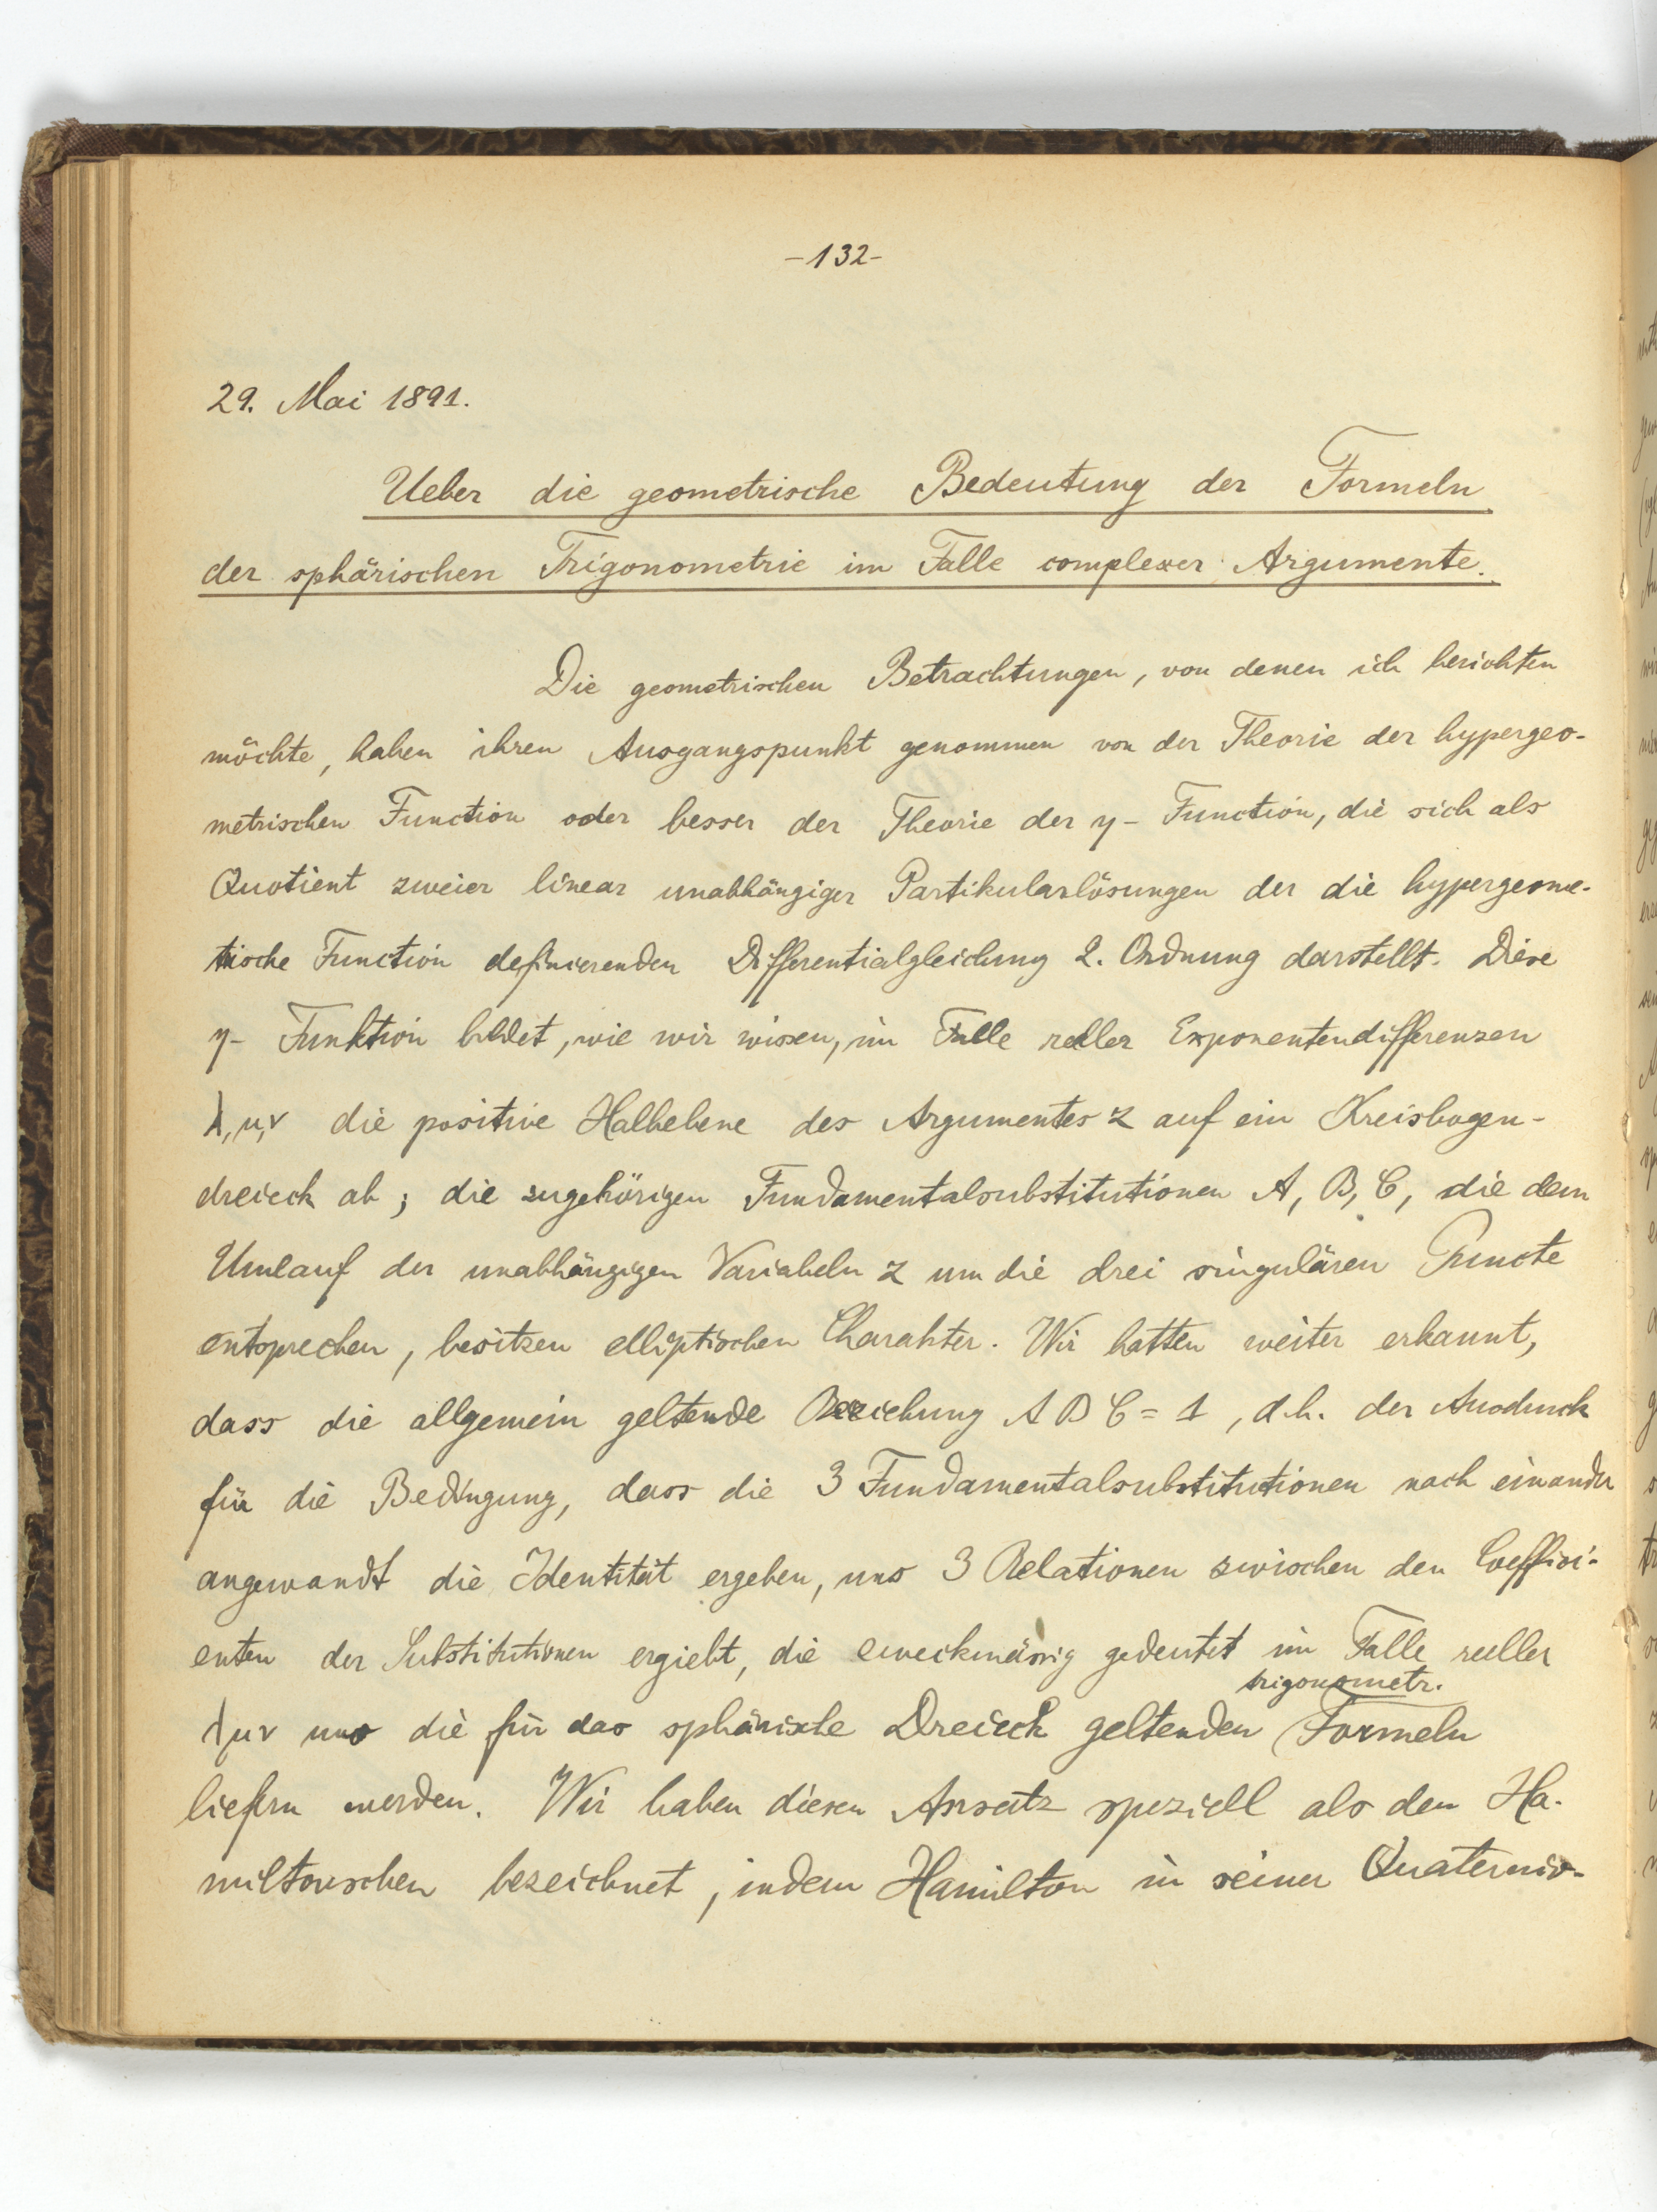 -132-
29. Mai 1891.
Ueber die geometrische Bedeutung der Formeln
der sphärischen Trigonometrie im Falle complexer Argumente.
Die geometrischen Betrachtungen, von denen ich berichten
möchte, haben ihren Ausgangspunkt genommen von der Theorie der hypergeo-
metrischen Function oder besser der Theorie der η- Function, die sich als
Quotient zweier linear unabhängiger Partikularlösungen der die hypergeome-
trische Function definierenden Differentialgleichung 2. Ordnung darstellt. Diese
η- Funktion bildet, wie wir wissen, im Falle reller Exponentendifferenzen
λ, μ, ν die positive Halbebene des Argumentes z auf ein Kreisbogen-
dreieck ab; die zugehörigen Fundamentalsubstitutionen A, B, C, die dem
Umlauf der unabhängigen Variabeln z um die drei singulären Puncte
entsprechen, besitzen elliptischen Charakter. Wir hatten weiter erkannt,
dass die allgemein geltende Beziehung A B C = 1, d.h. der Ausdruck
für die Bedingung, dass die 3 Fundamentalsubstitutionen nach einander
angewandt die Identität ergeben, uns 3 Relationen zwischen den Coeffici-
enten der Substitutionen ergiebt, die zweckmässig gedeutet im Falle reeller
trigonometr.
λ μ ν uns die für das sphärische Dreieck geltenden Formeln
liefern werden. Wir haben diesen Ansatz speziell als den Ha-
miltonschen bezeichnet, indem Hamilton in seiner Quaternio-